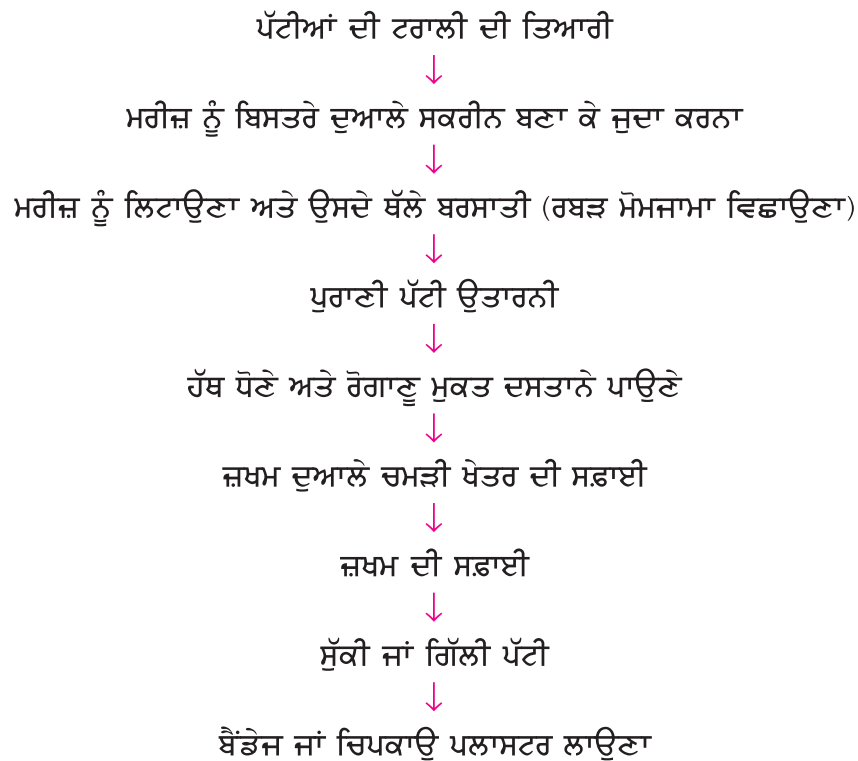 ਪੱਟੀਆਂ ਦੀ ਟਰਾਲੀ ਦੀ ਤਿਆਰੀ
ਮਰੀਜ਼ ਨੂੰ ਬਿਸਤਰੇ ਦੁਆਲੇ ਸਕਰੀਨ ਬਣਾ ਕੇ ਜੁਦਾ ਕਰਨਾ
ਮਰੀਜ਼ ਨੂੰ ਲਿਟਾਉਣਾ ਅਤੇ ਉਸਦੇ ਥੱਲੇ ਬਰਸਾਤੀ (ਰਬੜ ਮੋਮਜਾਮਾ ਵਿਛਾਉਣਾ)
ਪੁਰਾਣੀ ਪੱਟੀ ਉਤਾਰਨੀ
ਹੱਥ ਧੋਣੇ ਅਤੇ ਰੋਗਾਣੂ ਮੁਕਤ ਦਸਤਾਨੇ ਪਾਉਣੇ
ਜ਼ਖਮ ਦੁਆਲੇ ਚਮੜੀ ਖੇਤਰ ਦੀ ਸਫ਼ਾਈ
ਜ਼ਖਮ ਦੀ ਸਫ਼ਾਈ
ਸੁੱਕੀ ਜਾਂ ਗਿੱਲੀ ਪੱਟੀ
ਬੈਂਡੇਜ ਜਾਂ ਚਿਪਕਾਊ ਪਲਾਸਟਰ ਲਾਉਣਾ